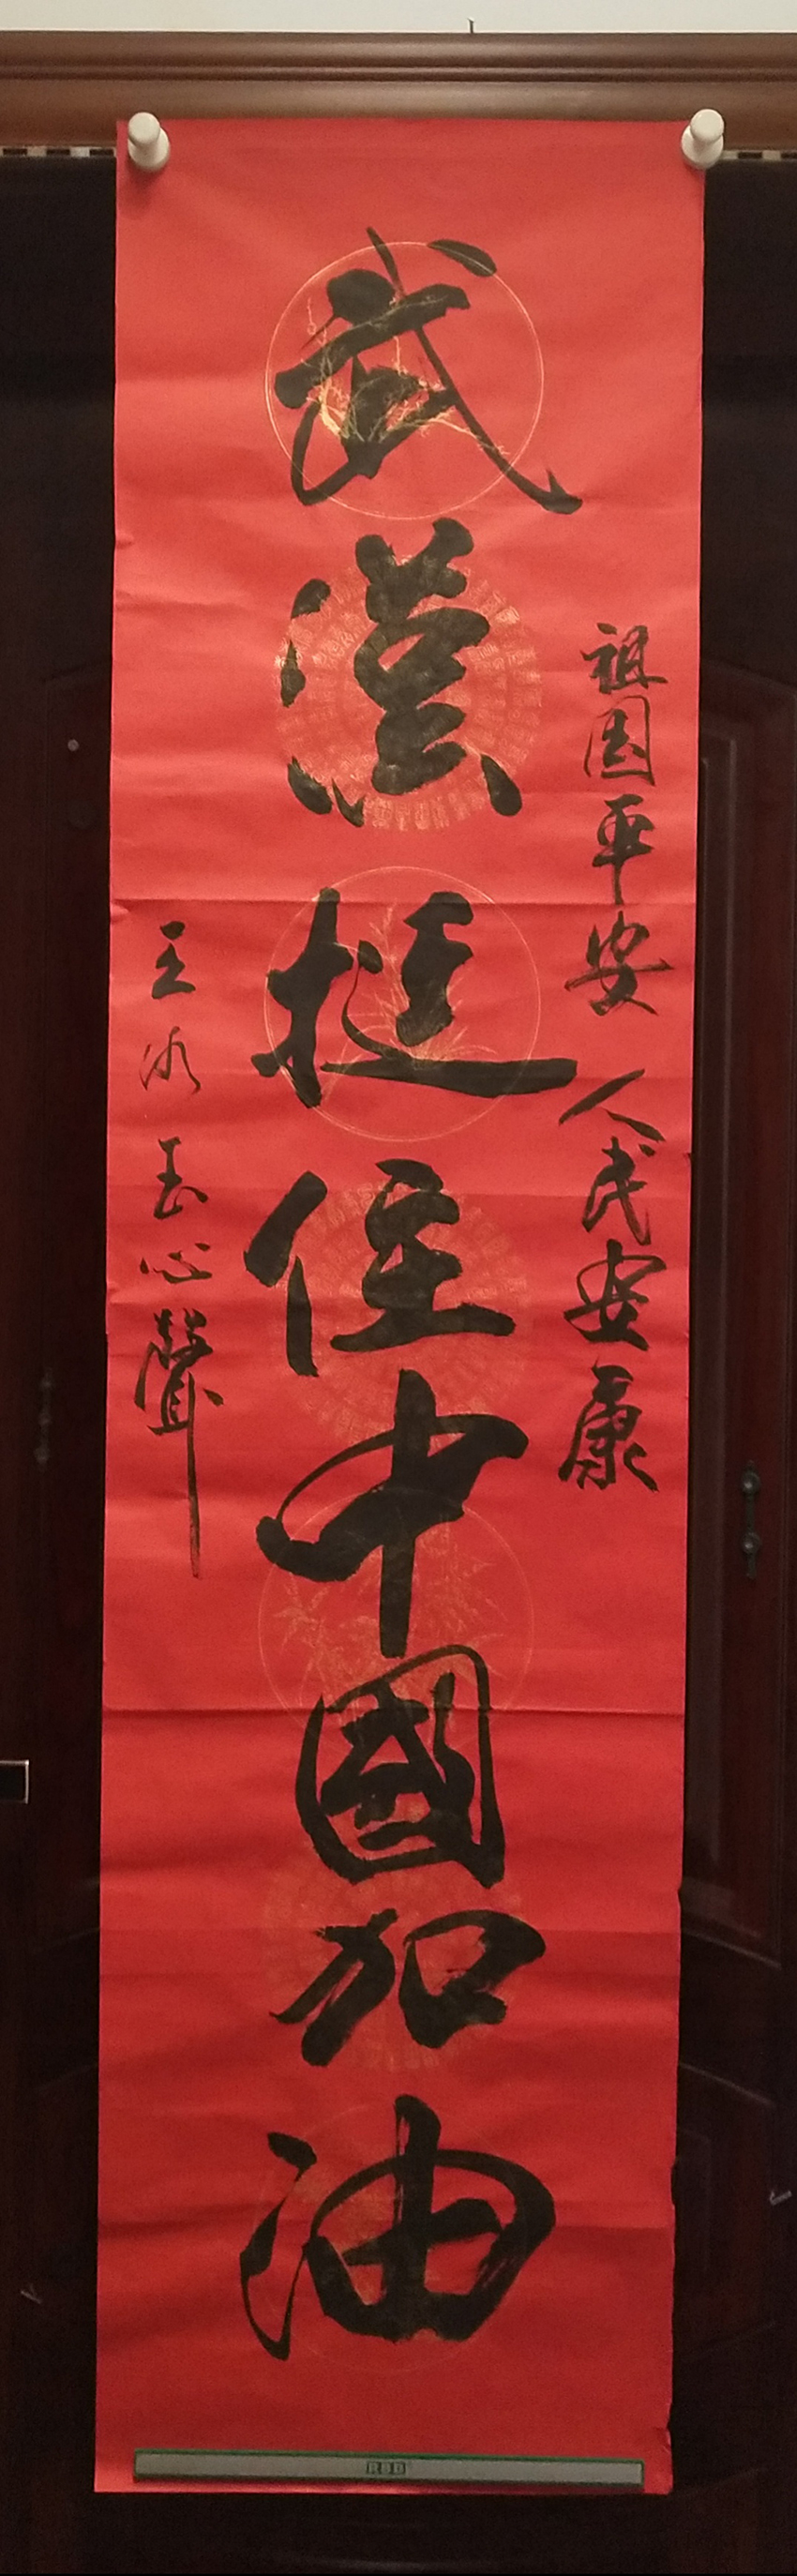 祖國平安 人民安康
武漢挺住中國加油
王冰玉心聲
RBB